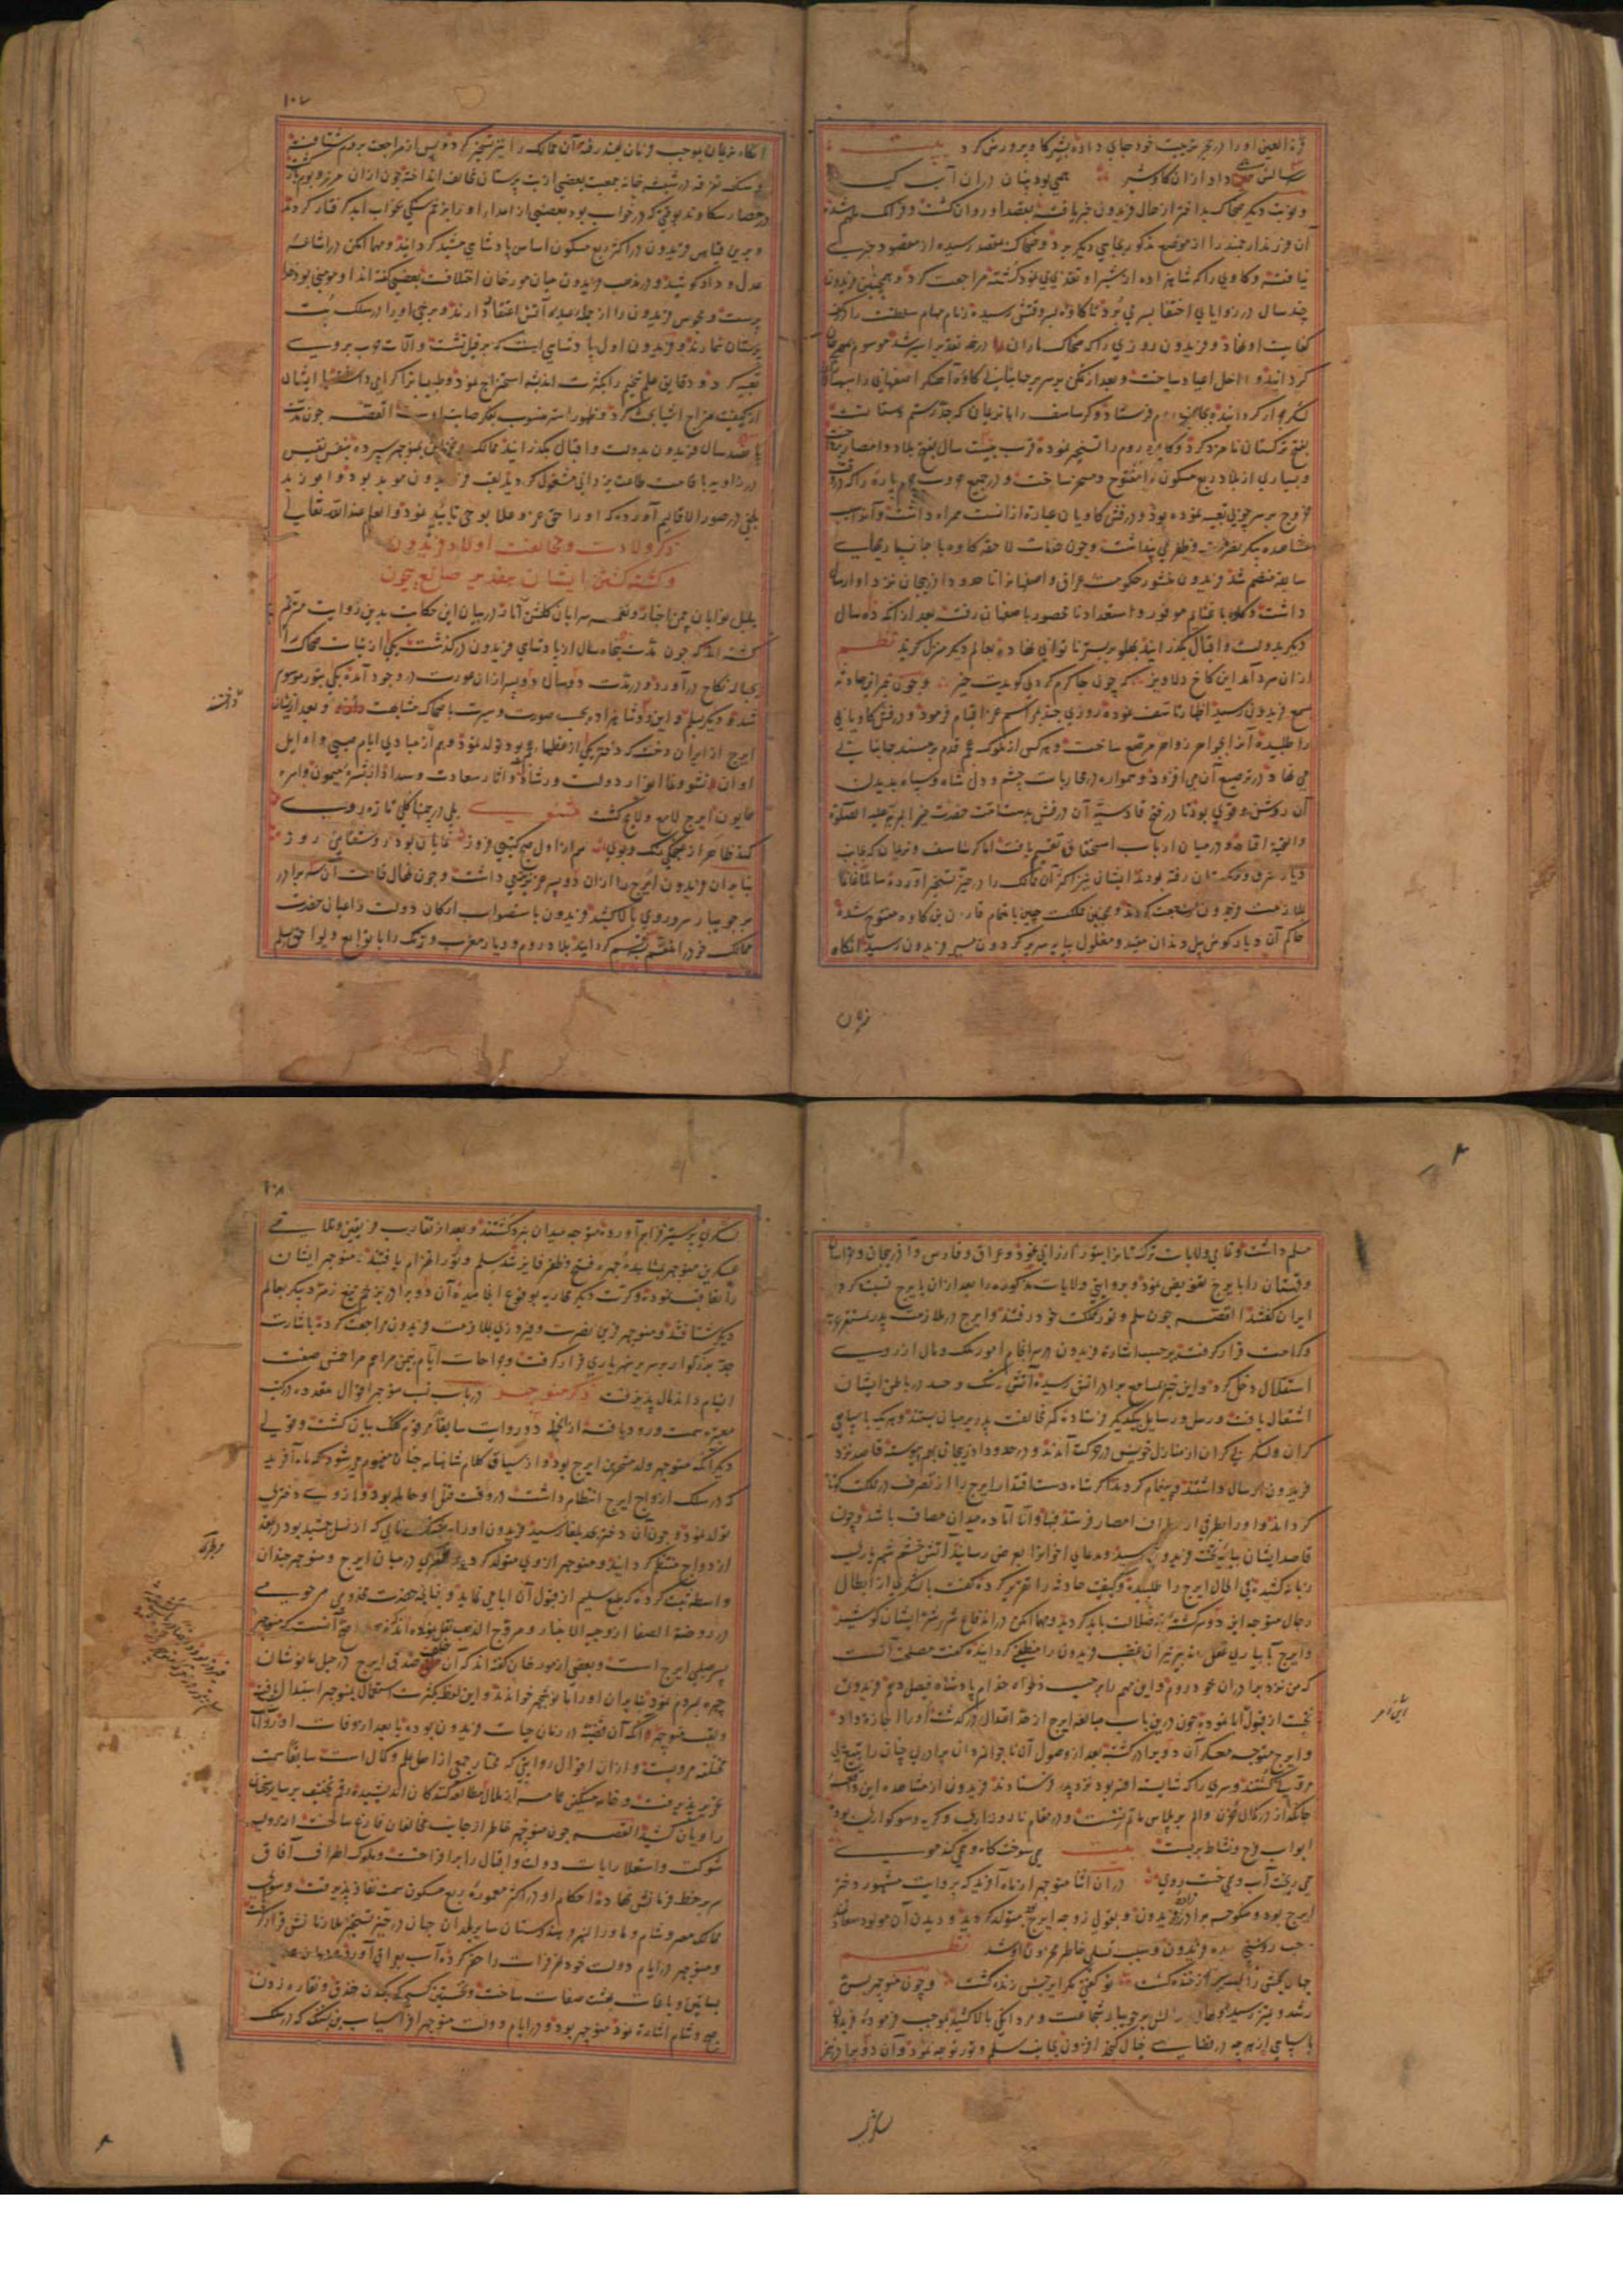 قرة العین او را در حجر تربیت خود جای داده بشیر کاو پرورش کرد بیت
داد از ان کاو شیر همی بود پنهان دران
و نوبت دیکر ضحاک بداختر از حال فریدون خبر یافته بقصد او روان کشت و فرانک
آن فرزند ارجمند را از موضع مذکور بجای دیکر برد و ضحاک بمقصد رسیده از مقصود جز
نیافت و کاوی را که شاهزاده از شیر او تغذی می نمود کشته مراجعت کرد و همچنین فریدون
چند سال در زوایای اختفا بسر می برد تا کاوه بسر وقتش رسیده زمام مهام سلطنت را در کف
کفایت او نهاد و فریدون روزی را که ضحاک
کردانید و داخل اعیاد ساخت و بعد از تمکن بر سریر جهانبانی کاوه آهنکر اصفهانی را
لشکر کردانیده بجانب روم فرستاد و کرساسف را با نریمان که جد رستم دستانست
بفتح ترکستان نامزد کرد و کاوه روم را تسخیر نموده قرب بیست سال بفتح بلاد و امصار
و بسیاری از بلاد ربع مسکون را مفتوح و مسخر ساخت و در جمیع حروب چرم پاره را که در وقت
خروج بر سر چوبی تعبیه نموده بود و درفش کاویان عبارة ازانست همراه داشت و آنرا
سابقه منضم شد فریدون منشور حکومت عراق و اصفهان تا حدود اذربیجان نزد او ارسال
داشت و کاوه با غنایم موفور و استعداد نامحصور باصفهان رفت بعد از انکه ده سال
دیکر بدولت و اقبال بکذرانید پهلو بر بستر ناتوانی نهاده بعالم دیکر منزل کزید نظم
ازان سرد آمد این کاخ دلاویز که چون جا کرم کردی کویدت خیز و چون خبر این حادثه
بسمع فریدون رسید اظهار تاسف نموده روزی چند بمراسم عزا قیام فرمود و درفش کاویانی
را طلبیده آنرا بجواهر زواهر مرصع ساخت و هر کس از ملوک عجم قدم بر مسند جهانبانی
می نهاد در ترصیع آن می افزود و همواره در محاربات چشم و دل شاه و سپاه بدیدن
آن روشن و قوی بود تا در فتح قادسیه آن درفش بدست امت حضرت خیر البریه علیه الصلوة
والتحیة افتاده و در میان ارباب استحقاق تقسیم یافت اما کرشاسف و نریمان که بجانب
دیار مشرق و ترکستان رفته بودند ایشان نیز اکثر آن ممالک را در حیز تسخیر آورده سالما غانما
بملازمت فریدون
حاکم آن دیار کوش پیل دندان مقید و مغلول بپایه سریر کردون مسیر فریدون رسید انکاه
نریمان
۱۰۷
انکاه نریمان بموجب فرمان بهند رفته آن ممالک را نیز تسخیر کرد و پس از مراجعت بروم شتافته
و سنک تفرقه در شیشه خانه جمعیت بعضی از بت پرستان مخالف انداخته چون ازان مرز و بوم
در حصار سکاوند بوقتی که در خواب بود بعضی از اعدا او را بزخم سنکی بخواب ابد کرفتار کردند
و برین قیاس فریدون در اکثر ربع مسکون اساس پادشاهی مشید کردانید و مهما امکن در اشاعه
عدل و داد کوشید و در مذهب فریدون میان مورخان اختلافست بعضی کفته اند او مومنی بود خدا
پرست و مجوس فریدون را از جمله عبده آتش اعتقاد دارند و برخی او را در سلک بت
پرستان شمارند و فریدون اول پادشاهی است که بر فیل نشست و آلات حرب بر وی
تعبیه کرد و دقایق علم نجوم را بکثرت اندیشه استخراج نمود و طبیبانرا کرامی داشته با ایشان
از کیفیت مزاج اشیا بحث کرد القصه چون مدت
پانصد سال فریدون بدولت و اقبال بکذرانید ممالک و خزاین بمنوچهر سپرده بنفس نفیس
در زاویه باقامت طاعت یزدانی مشغول کردید لقب فریدون موبد بود و ابو زید
بلخی در صور الاقالیم آورده که او را حق عز و علا بوحی تایید نمود والعلم عند الله تعالی
ذکر ولادت و مخالفت اولاد فریدون
و کشته کشتن ایشان بتقدیر صانع بیچون
بلبل نوایان چمن اخبار و نغمه سرایان کلشن آثار در بیان این حکایت بدین روایت مترنم
کشته اند که چون مدت پنجاه سال از پادشاهی فریدون درکذشت یکی از بنات ضحاک را
بحباله نکاح درآورد و در مدت دو سال دو پسر ازان عورت در وجود آمد یکی بتور موسوم
شد و دیکر سلم و این دو شاهزاده بحسب صورت و سیرت با ضحاک مشابهت و بعد از ایشان
ایرج از ایران دخت که دختر یکی از عظماء عجم بود تولد نمود و هم از مبادی ایام صبی و اوایل
اوان نشو و نما انوار دولت و رشاد و آثار سعادت و سداد از بشره میمون و ناصیه
همایون ایرج لامع و لایح کشت مثنوی بلی در چمنها کلی تازه روی
کند ظاهر از غنچکی رنک و بوی هم از اول صبح کیتی فروز نمایان بود روشنایی روز
بنابران فریدون ایرج را ازان دو پسر عزیزتر می داشت و چون نهال قامت آن سه برادر
بر جویبار سروری بالا کشید فریدون باستصواب ارکان دولت و اعیان حضرت
ممالک خود را منقسم کردانید بلاد روم و دیار مغرب و ترک را با توابع و لواحق بسلم
مسلم داشت و تمامی ولایات ترکستانرا بتور ارزانی نمود و عراق و فارس و آذربیجان و خراسان
و قهستان را بایرج تفویض نمود و بروایتی ولایات مذکوره را بعد ازان بایرج نسبت کرده
ایران کفتند القصه چون سلم و تور بمملکت خود رفتند و ایرج در ملازمت پدر بمستقر عز
و کرامت قرار کرفت برحسب اشاره فریدون در سرانجام امور ملک و مال از روی
استقلال دخل کرد و این خبر بمسامع برادرانش رسیده آتش رشک و حسد در باطن ایشان
اشتعال یافت و رسل و رسایل بیکدیکر فرستاده کمر مخالفت پدر بر میان بستند و هریک با سپاهی
کران و لشکر بی کران از منازل خویش در حرکت آمدند و در حدود اذربیجان بهم پیوسته قاصد نزد
فریدون ارسال داشتند و پیغام کردند اکر شاه دست اقتدار ایرج را از تصرف در ملک کوتاه
کرداند و او را بطرفی از اطراف امصار فرستد فبها و الا آماده میدان مصاف باشد و چون
قاصد ایشان بپایه تخت فریدون رسید و مدعای اخوانرا بعرض رسانید آتش خشم شهریار
زبانه کشید فی الحال ایرج را طلبیده و کیفیت حادثه را تقریر کرده کفت با لشکری از ابطال
رجال متوجه این دو سرکشته تیه ضلالت باید کردید و مهما امکن در اندفاع شر و شور ایشان کوشید
و ایرج بآبیاری عقل و تدبیر نیران غضب فریدون را منطفی کردانیده کفت مصلحت آنست
که من نزد برادران خود روم و این مهم را برحسب دلخواه خدام پادشاه فیصل دهم فریدون
نخست از قبول ابا نموده چون درین باب مبالغه ایرج از حد اعتدال درکذشت او را اجازه داد
و ایرج متوجه معسکر آن دو برادر کشته بعد از وصول آن ناجوانمردان برادری چنان را بتیغ بی
مروتی کشتند و سری را که شایسته افسر بود نزد پدر فرستادند فریدون از مشاهده این واقعه
جانکداز در کمال حزن و الم بر پلاس ماتم نشست و در مقام ناله و زاری و کریه و سوکواری بود
ابواب فرح و نشاط بربست بیت می سوخت کاه و می کند موی
می ریخت آب و می خست روی در ان اثنا منوچهر از ماه آفرید که بروایت مشهور دختر
ایرج بود و منکوحه برادرزاده فریدون و بقولی زوجه ایرج بود متولد کردید و دیدن آن مولود سعادتمند
موجب روشنی دیده فریدون و سبب تسلی خاطر محزون او شد نظم
تو کفتی مکر ایرجش زنده کشت و چون منوچهر بسن
رشد و تمیز رسید نهال بالش بر جویبار شجاعت و مردانکی بالا کشید بموجب فرموده فریدون
با سپاهی از هر چه در فضای خیال کنجد افزون بجانب سلم و تور توجه نمود و آن دو برادر نیز
لشکری
این امر
۱۰۸
لشکری پر ستیز فراهم آورده متوجه میدان نبرد کشتند و بعد از تقارب فریقین و تلاقی
عسکرین منوچهر بمشاهده چهره فتح و ظفر فایز شد سلم و تور انهزام یافتند منوچهر ایشان
را تعاقب نموده و کرت دیکر محاربه بوقوع انجامیده آن دو برادر بزخم تیغ زمرد پیکر بعالم
دیکر شتافتند و منوچهر قرین نصرت و فیروزی بملازمت فریدون مراجعت کرده باشارت
جد بزرکوار بر سریر شهریاری قرار کرفت و جراحات ایام بیمن مراحم مراهمش صفت
التیام و اندمال پذیرفت ذکر منوچهر در باب نسب منوچهر اقوال متعدده در کتب
معتبره سمت ورود یافته از انجمله دو روایت سابقا مرقوم کلک بیان کشت و قولی
دیکر آنکه منوچهر ولد متحرین ایرج بود و از سیاق کلام شاهنامه چنان مفهوم می شود که ماه آفرید
که در سلک ازواج ایرج انتظام داشت در وقت قتل او حامله بود و از وی دختری
تولد نمود و چون آن دختر بحد بلوغ رسید فریدون او را به پشنک نامی که از نسل جمشید بود در عقد
ازدواج منتظم کردانید و منوچهر ازوی متولد کردید و طبری در میان ایرج و منوچهر چندان
واسطه ثبت کرده که طبع سلیم از قبول آن ابا می نماید و جنابی حضرت مخدومی مرحومی
در روضة الصفا از وجیه الاخبار و مروج الذهب نقل نموده اند که اصح آنست که منوچهر
پسر صلبی ایرج است و بعضی از مورخان کفته اند که آن خلف صدق ایرج در جبل مانوشان
چهره بمردم نمود بنابران او را مانوشچهر خواندند و این لفظ بکثرت استعمال بمنوچهر استبدال یافت
مختلفه مرویست و از ان اقوال روایتی که مختار جمعی از اهل علم و کمال است سابقا سمت
تحریر پذیرفت و خامه مشکین عمامه از ملال مطالعه کنندکان اندیشیده رقم تخفیف بر سایر سخنان
راویان کشید القصه چون منوچهر خاطر از جانب مخالفان فارغ ساخت از روی
شوکت و استعلا رایات دولت و اقبال را برافراخت و ملوک اطراف آفاق
سر بر خط فرمانش نهادند احکام او در اکثر معموره ربع مسکون سمت نفاذ پذیرفت و سوی
ممالک مصر و شام و ماورا النهر و هندوستان سایر بلدان جهان در حیز تسخیر ملازمانش قرار کرفت
و منوچهر در ایام دولت خود نهر فرات را حفر کرده آب بعراق آورد
بساتین و باغات بهشت صفات ساخت و نخستین کسی که بکندن خندق و نقاره زدن
صبح و شام اشاره نمود منوچهر بود و در ایام دولت منوچهر افراسیاب بن پشنک که در سلک